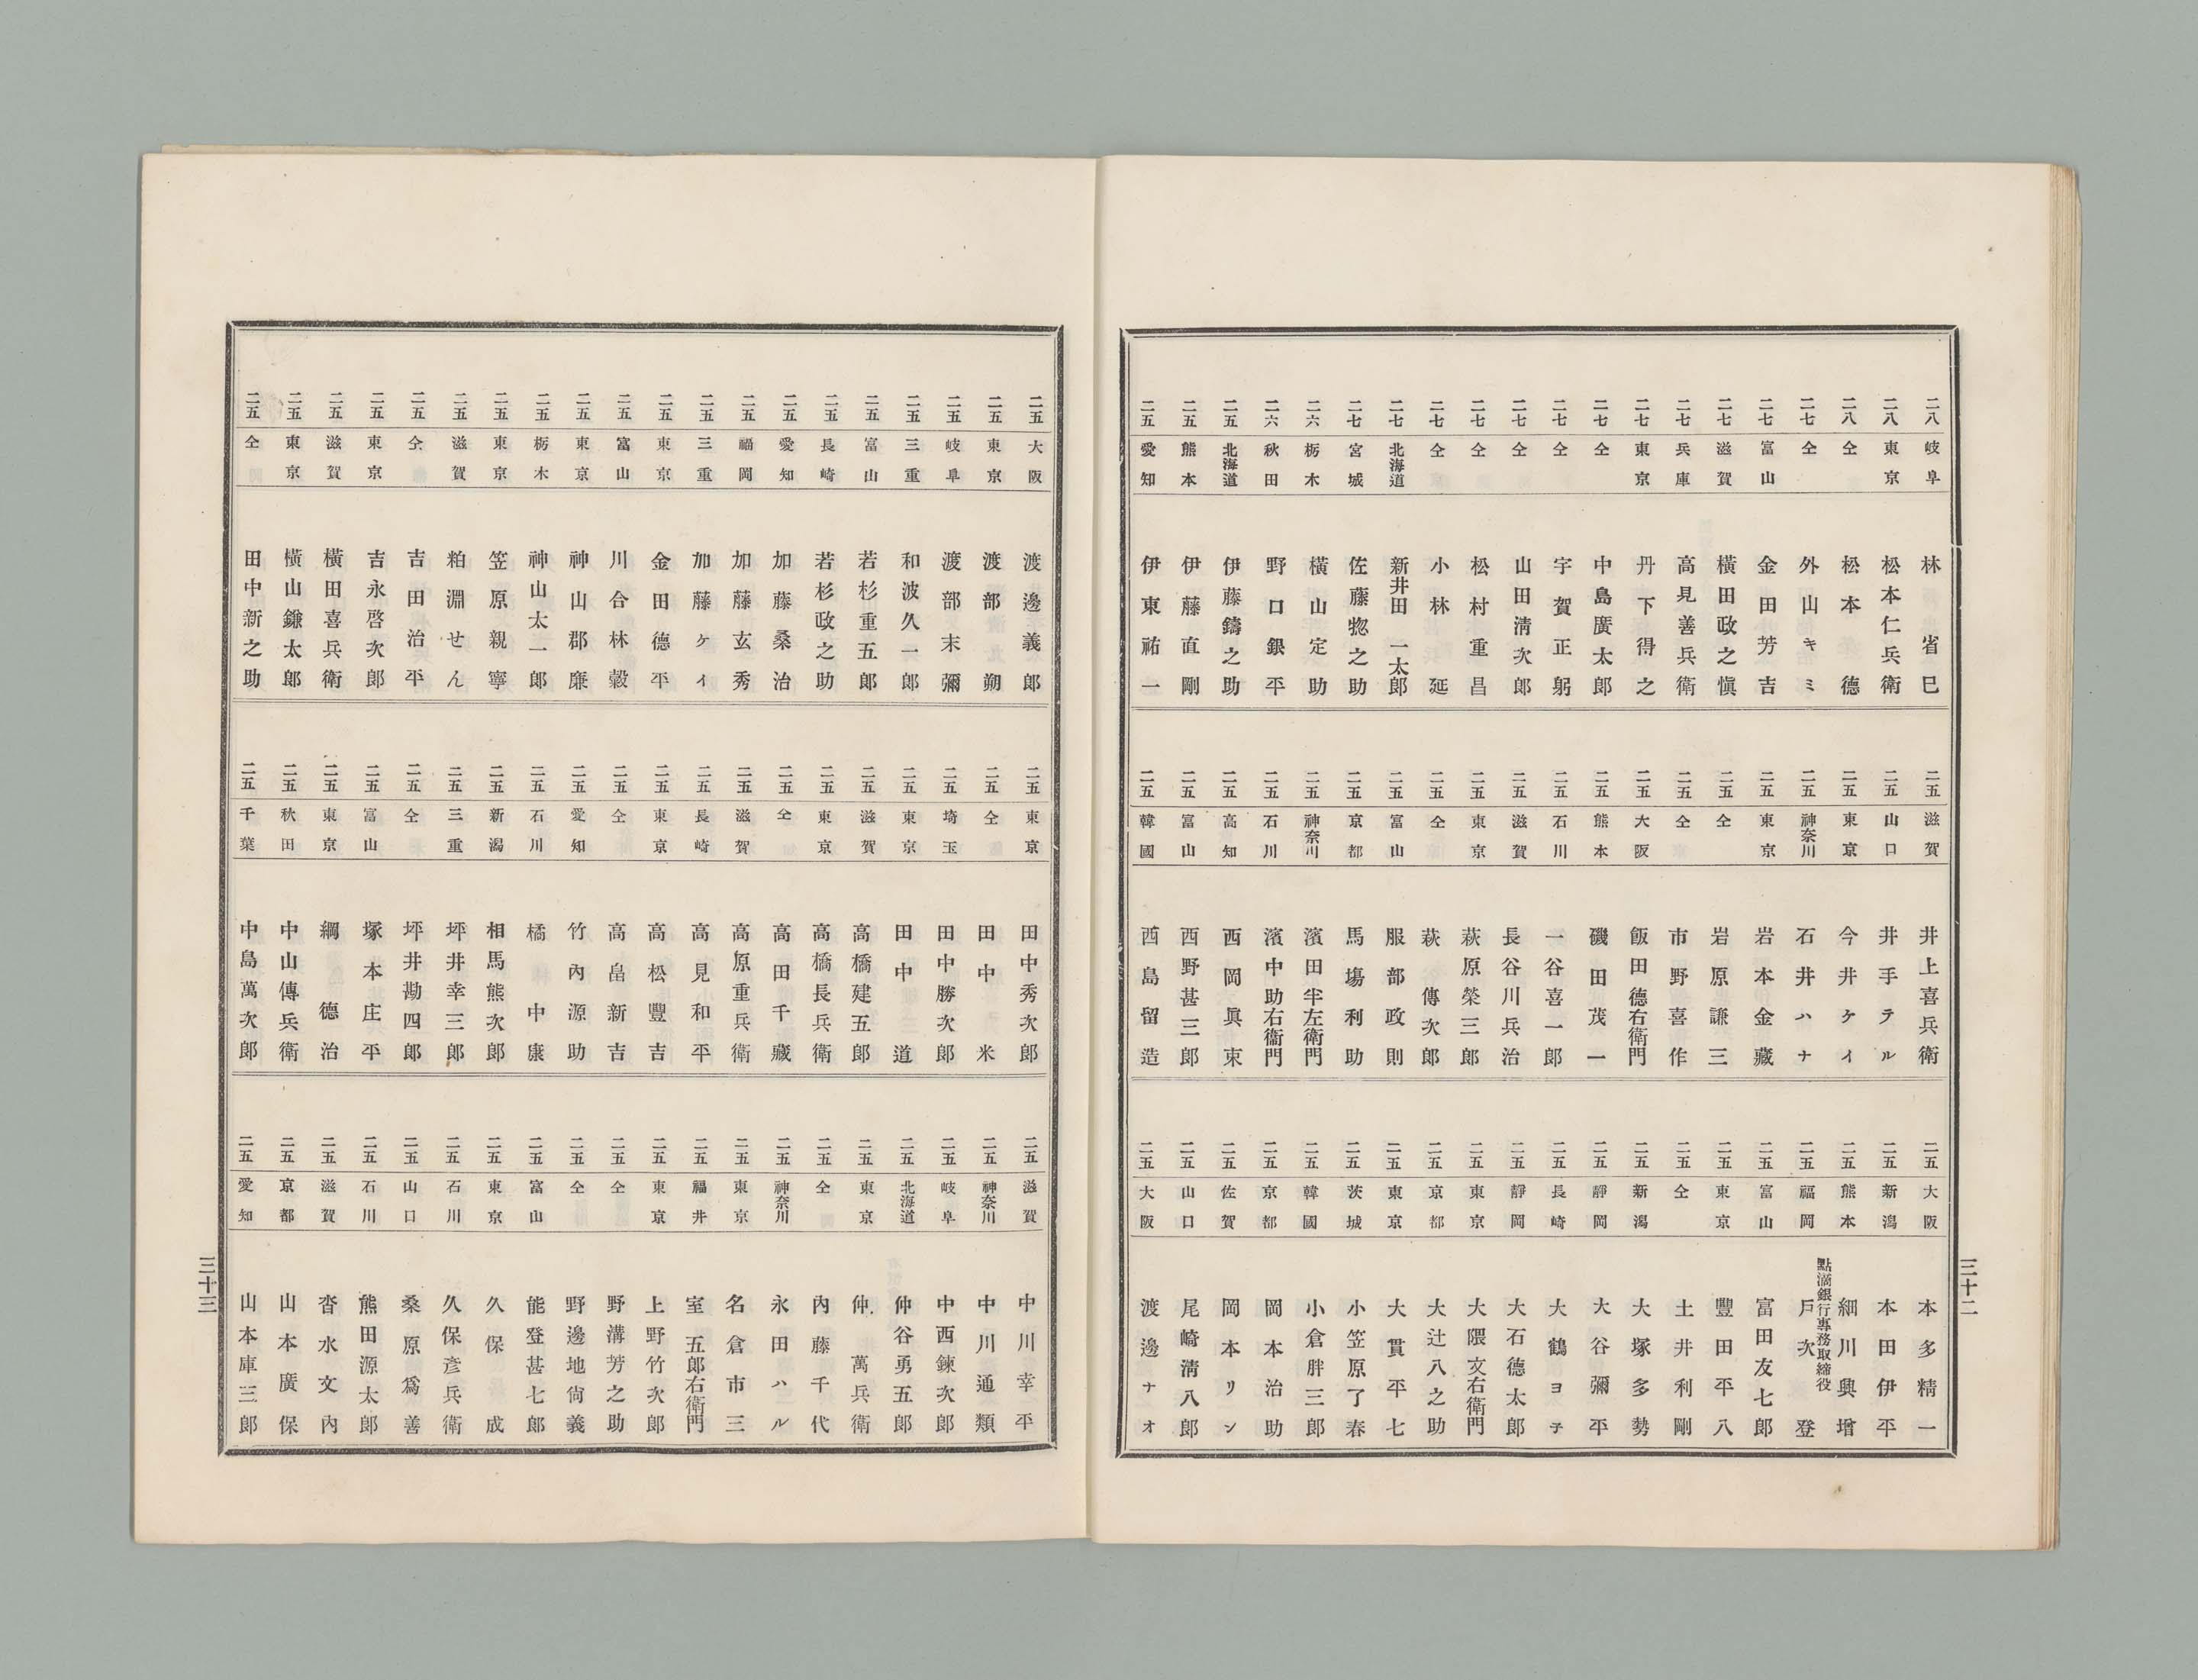 二八 岐阜 林省巳
二八 東京 松本仁兵衛
二八 仝 松本德
二七 仝 外山キミ
二七 富山 金田芳吉
二七 滋賀 橫田政之愼
二七 兵庫 高見善兵衛
二七 東京 丹下得之
二七 仝 中島廣太郎
二七 仝 宇賀正躬
二七 仝 山田淸次郎
二七 仝 松村重昌
二七 仝 小林延
二七 北海道 新井田一太郎
二七 宮城 佐藤惣之助
二六 栃木 橫山定助
二六 秋田 野口銀平
二五 北海道 伊藤鑄之助
二五 熊本 伊藤直剛
二五 愛知 伊東祐一
二五 滋賀 井上喜兵衛
二五 山口 井手テル
二五 東京 今井ケイ
二五 神奈川 石井ハナ
二五 東京 岩本金藏
二五 仝 岩原謙三
二五 仝 市野喜作
二五 大阪 飯田德右衛門
二五 熊本 磯田茂一
二五 石川 一谷喜一郎
二五 滋賀 長谷川兵治
二五 東京 萩原榮三郎
二五 仝 萩傳次郎
二五 富山 服部政則
二五 京都 馬塲利助
二五 神奈川 濱田半左衛門
二五 石川 濱中助右衞門
二五 高知 西岡眞束
二五 富山 西野甚三郎
二五 韓國 西島留造
二五 大阪 本多精一
二五 新潟 本田伊平
二五 熊本 細川興增
二五 福岡 點滴銀行專務取締役 戶次登
二五 富山 富田友七郎
二五 東京 豐田平八
二五 仝 土井利剛
二五 新潟 大塚多勢
二五 靜岡 大谷彌平
二五 長崎 大鶴ヨテ
二五 靜岡 大石德太郎
二五 東京 大隈文右衛門
二五 京都 大辻八之助
二五 東京 大貫平七
二五 茨城 小笠原了春
二五 韓國 小倉胖三郎
二五 京都 岡本治助
二五 佐賀 岡本リン
二五 山口 尾崎淸八郎
二五 大阪 渡邊ナオ
三十二
二五 大阪 渡邊義郎
二五 東京 渡部朔
二五 岐阜 渡部末彌
二五 三重 和波久一郎
二五 富山 若杉重五郎
二五 長崎 若杉政之助
二五 愛知 加藤桑治
二五 福岡 加藤玄秀
二五 三重 加藤ケイ
二五 東京 金田德平
二五 富山 川合林穀
二五 東京 神山郡廉
二五 栃木 神山太一郎
二五 東京 笠原親寧
二五 滋賀 粕淵せん
二五 仝 吉田治平
二五 東京 吉永啓次郎
二五 滋賀 橫田喜兵衛
二五 東京 橫山鎌太郎
二五 仝 田中新之助
二五 東京 田中秀次郎
二五 仝 田中米
二五 埼玉 田中勝次郎
二五 東京 田中道
二五 滋賀 高橋建五郎
二五 東京 高橋長兵衛
二五 仝 高田千藏
二五 滋賀 高原重兵衛
二五 長崎 高見和平
二五 東京 高松豐吉
二五 仝 高畠新吉
二五 愛知 竹內源助
二五 石川 橘中康
二五 新潟 相馬熊次郎
二五 三重 坪井幸三郎
二五 仝 坪井勘四郎
二五 富山 塚本庄平
二五 東京 綱德治
二五 秋田 中山傳兵衛
二五 千葉 中島萬次郎
二五 滋賀 中川幸平
二五 神奈川 中川通類
二五 岐阜 中西鍊次郎
二五 北海道 仲谷勇五郎
二五 東京 仲萬兵衛
二五 仝 內藤千代
二五 神奈川 永田ハル
二五 東京 名倉市三
二五 福井 室五郎右衛門
二五 東京 上野竹次郎
二五 仝 野溝芳之助
二五 仝 野邊地尙義
二五 富山 能登甚七郎
二五 東京 久保成
二五 石川 久保彥兵衛
二五 山口 桑原爲善
二五 石川 熊田源太郎
二五 滋賀 沓水文內
二五 京都 山本廣保
二五 愛知 山本庫三郎
三十三